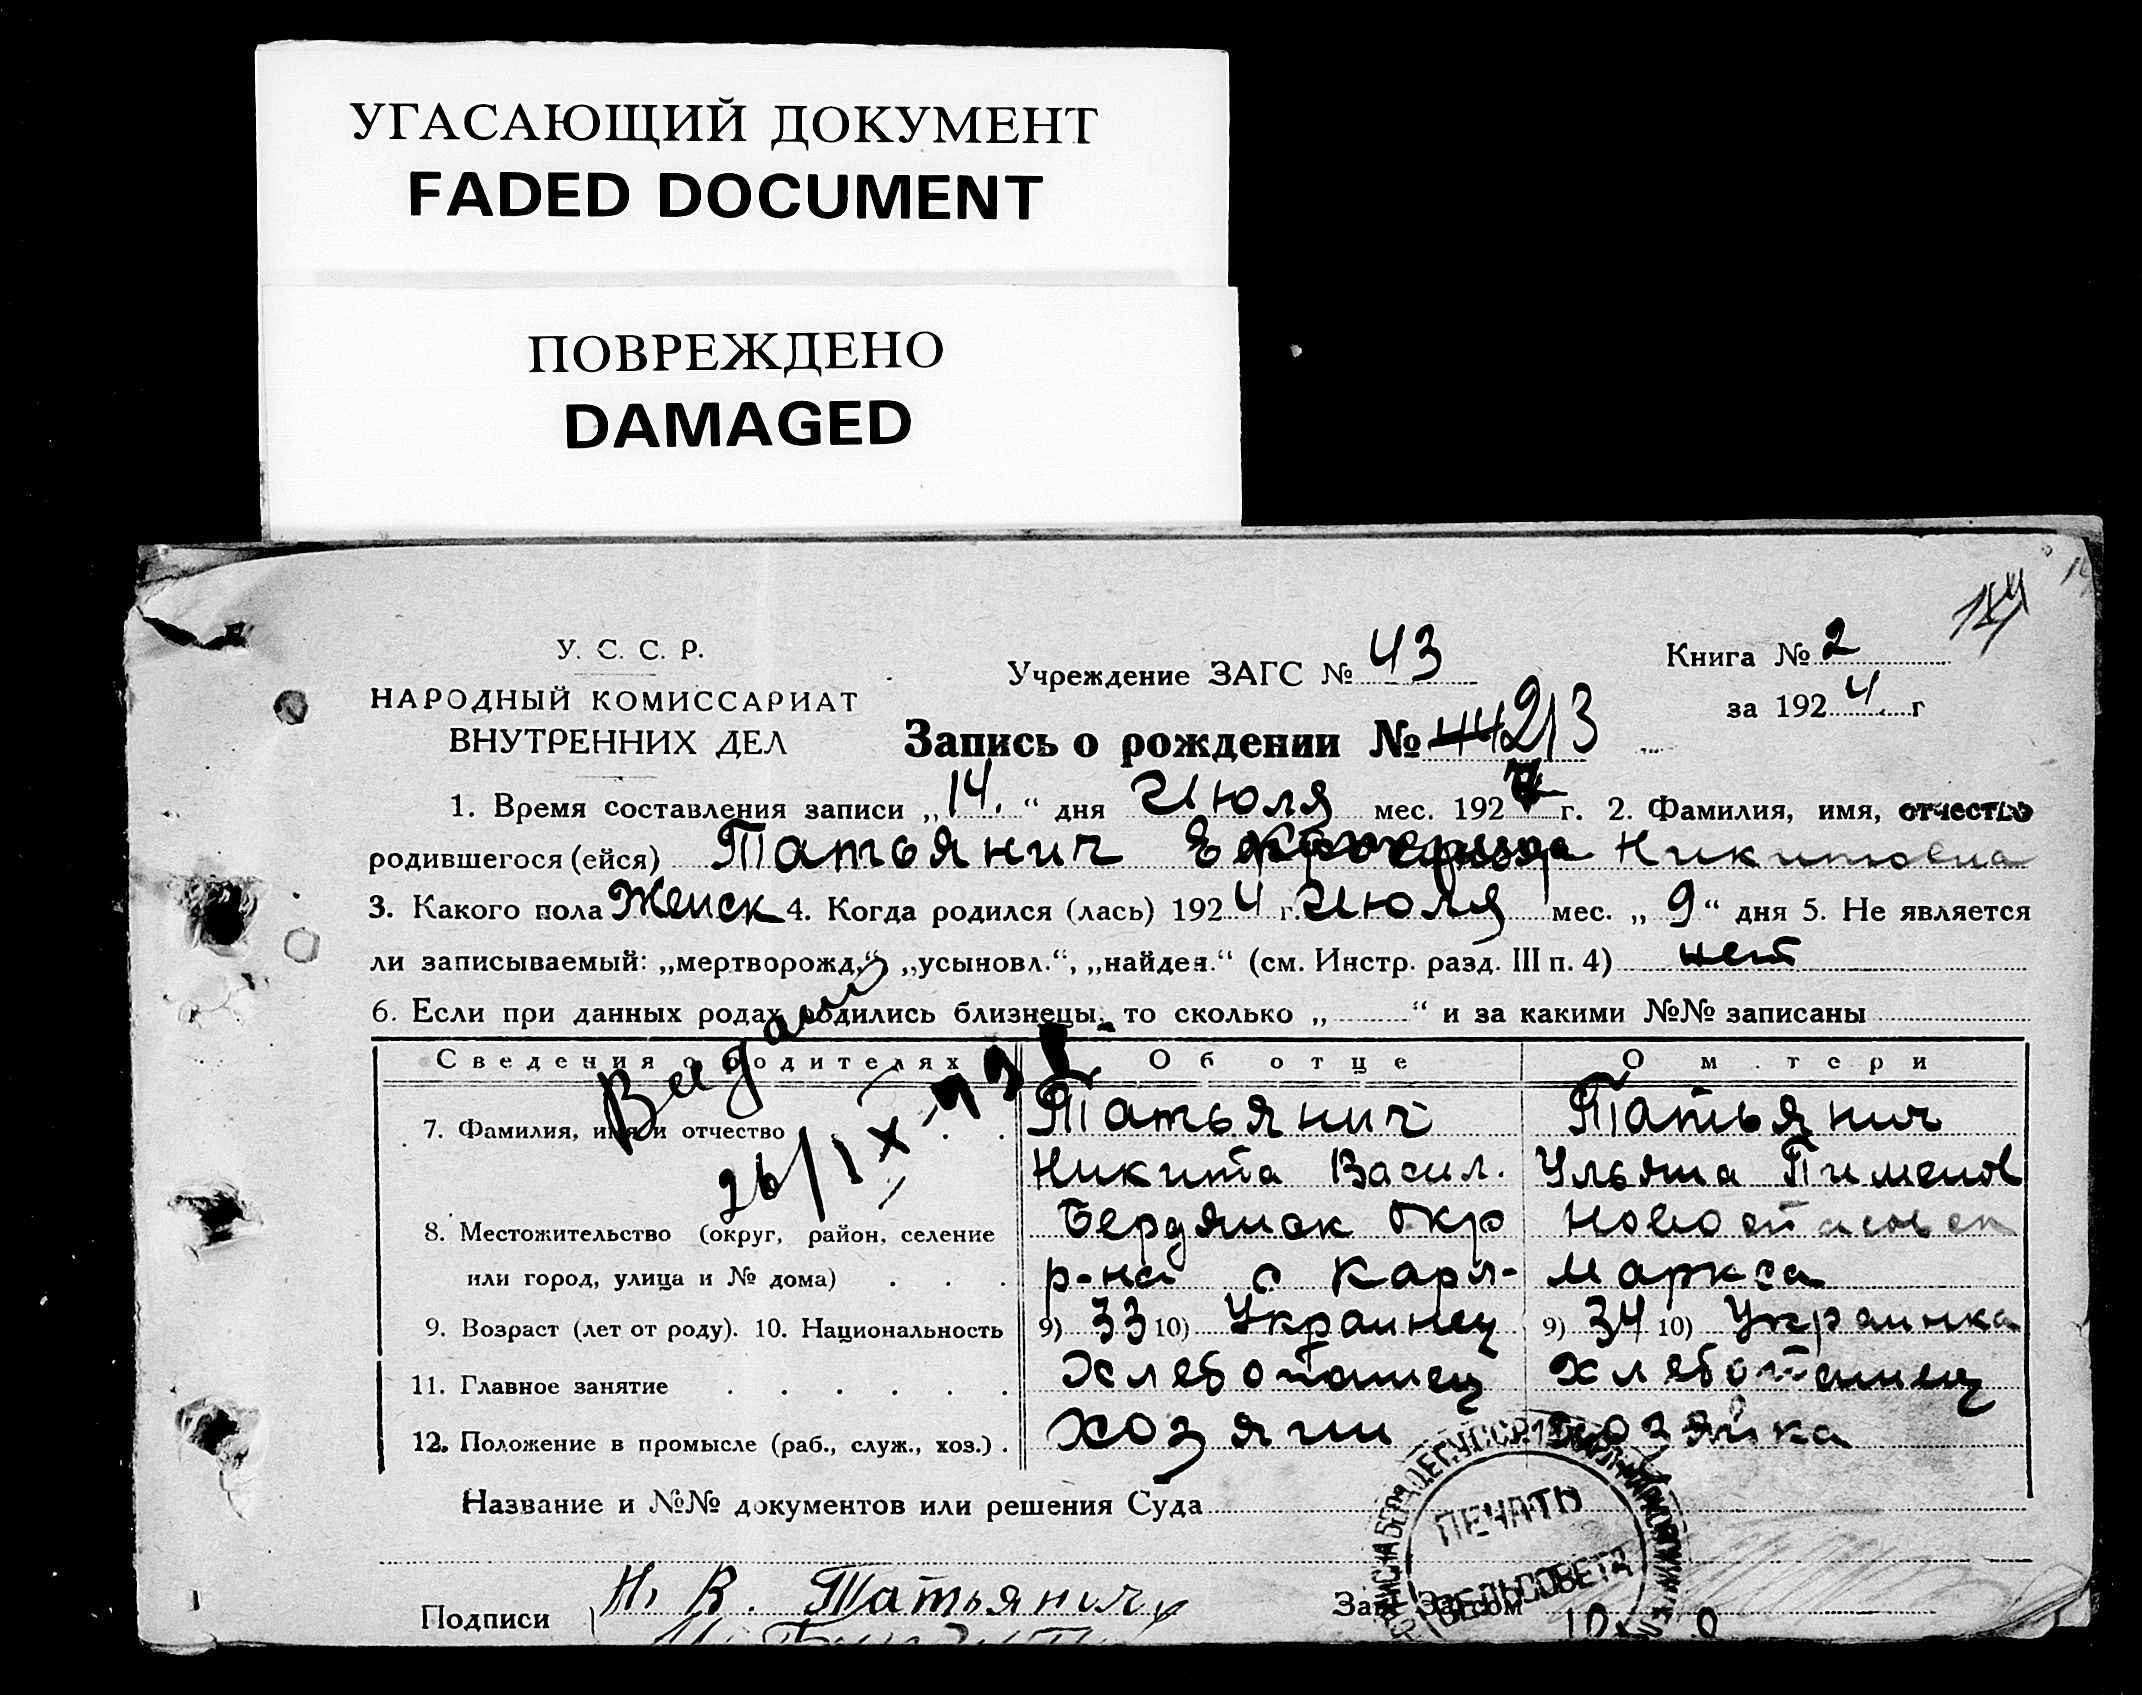 УГАСАЮЩИЙ ДОКУМЕНТ
FADED DOCUMENT
ПОВРЕЖДЕНО
DAMAGED
У. С. С. Р.
НАРОДНЫЙ КОМИССАРИАТ
ВНУТРЕННИХ ДЕЛ
Учреждение ЗАГС № 43
Книга № 2
за 1924 г
Запись о рождении № 44 213
1. Время составления записи „14." дня Июля мес. 192 г. 2. Фамилия, имя, отчество
родившегося (ейся) Татьянич Никитовна
3. Какого пола Женск 4. Когда родился (лась) 1924 г. Июля мес. „9" дня 5. Не является
ли записываемый: „мертворожд.", „усыновл.", „найден." (см. Инстр. разд. III п. 4) нет
6. Если при данных родах родились близнецы, то сколько „ " и за какими №№ записаны
Сведения о родителях Об отце О м тери
7. Фамилия, имя и отчество Татьянич Татьянич
Никита Васил. Ульяна Пименов
8. Местожительство (округ, район, селение Бердянск Окр Новоспасовск
или город, улица и № дома) р-на с Карл- Маркса
9. Возраст (лет от роду). 10. Национальность 9) 33 10) Украинец 9) 34 10) Украинка
11. Главное занятие Хлебопашец Хлебопашец
12. Положение в промысле (раб., служ., хоз.) Хозяин хозяйка
Выдан
26/IX
Название и №№ документов или решения Суда
ПЕЧАТЬ
СЕЛЬСОВЕТА
Подписи Н. В. Татьянич
Зав. Загсом